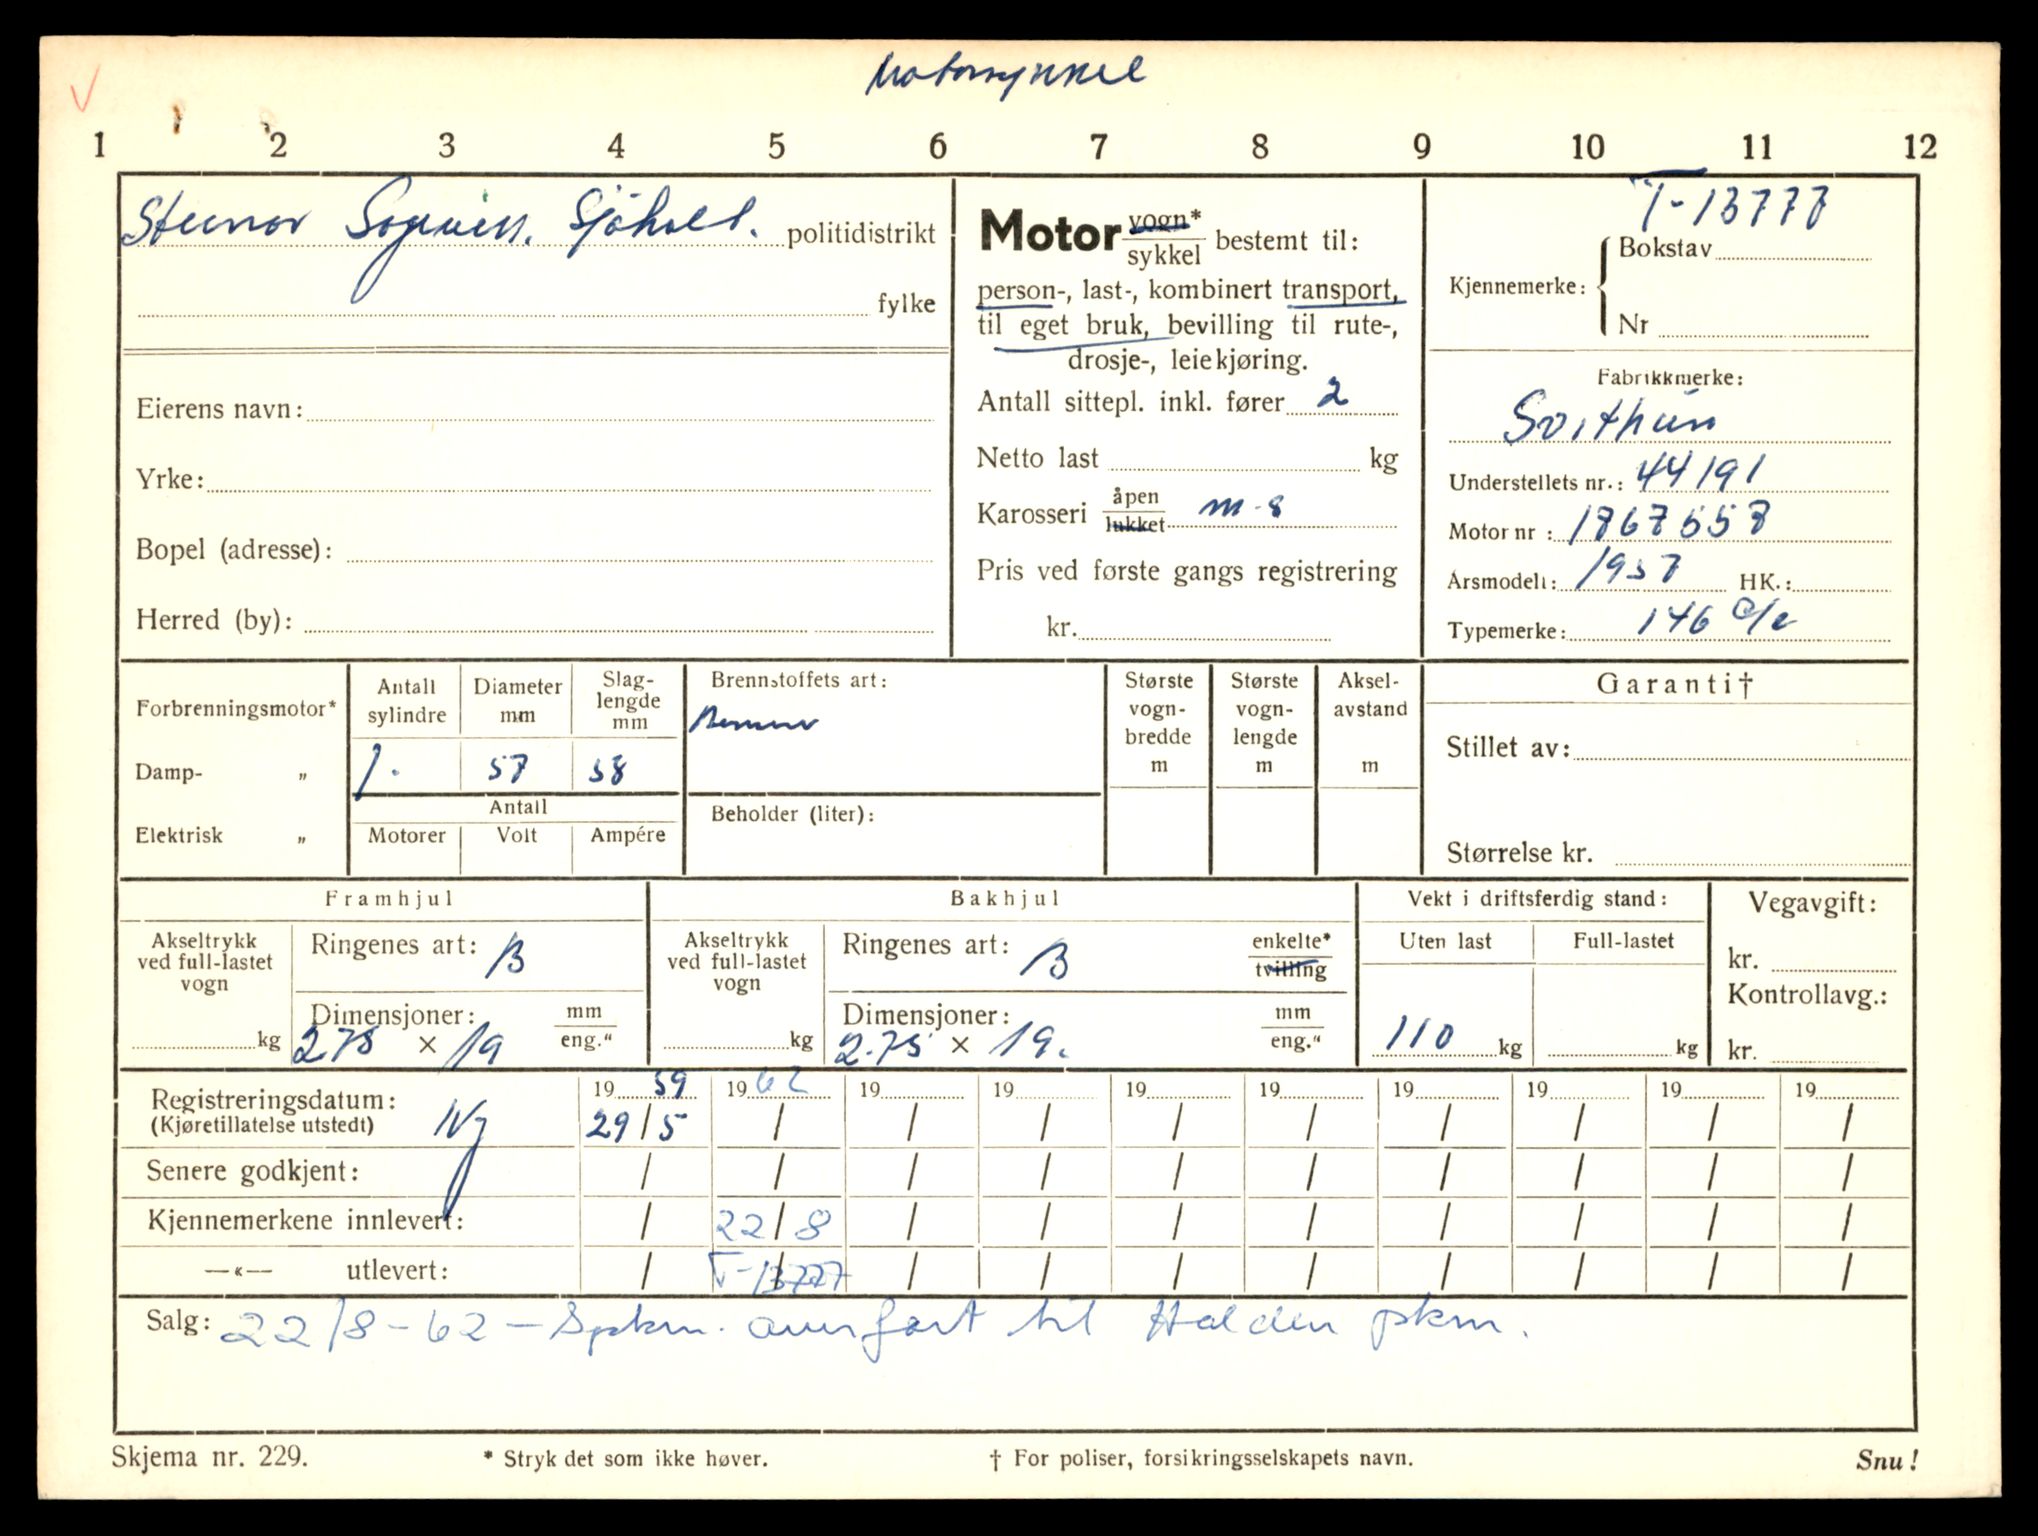 Motorsykkel
1 2 3 4 5 6 7 8 9 10 11 12
Steinar Sjöholt. politidistrikt
fylke
Eierens navn:
Yrke:
Bopel (adresse):
Herred (by):
Motor vogn* / sykkel bestemt til:
person-, last-, kombinert transport,
til eget bruk, bevilling til rute-,
drosje-, leiekjøring.
Antall sittepl. inkl. fører 2
Netto last kg
Karosseri åpen / lukket m-s
Pris ved første gangs registrering
kr.
T-13777
Kjennemerke: Bokstav
Nr
Fabrikkmerke:
Svithun
Understellets nr.: 44191
Motor nr : 1767557
Årsmodell: 1957 HK.:
Typemerke: 146 c/c
Forbrenningsmotor*
Damp- „
Elektrisk „
Antall sylindre
1.
Diameter mm
57
Slag-lengde mm
58
Antall
Motorer Volt Ampére
Brennstoffets art:
Beholder (liter):
Største vogn-bredde m
Største vogn-lengde m
Aksel-avstand m
Garanti†
Stillet av:
Størrelse kr.
Framhjul
Akseltrykk ved full-lastet vogn
kg
Ringenes art: B
Dimensjoner: mm / eng."
2.75 × 19
Bakhjul
Akseltrykk ved full-lastet vogn
kg
Ringenes art: B enkelte* / tvilling
Dimensjoner: mm / eng."
2.75 × 19.
Vekt i driftsferdig stand:
Uten last Full-lastet
110 kg kg
Vegavgift:
kr.
Kontrollavg.:
kr.
19 59 19 62 19 19 19 19 19 19 19 19
Registreringsdatum: Ny 29/5 / / / / / / / / /
(Kjøretillatelse utstedt)
Senere godkjent: / / / / / / / / / /
Kjennemerkene innlevert: / 22/8 / / / / / / / /
—«— utlevert: / T-13777 / / / / / / / /
Salg: 22/8-62 - Spkm. overført til Halden pkm.
Skjema nr. 229. * Stryk det som ikke høver. † For poliser, forsikringsselskapets navn. Snu!